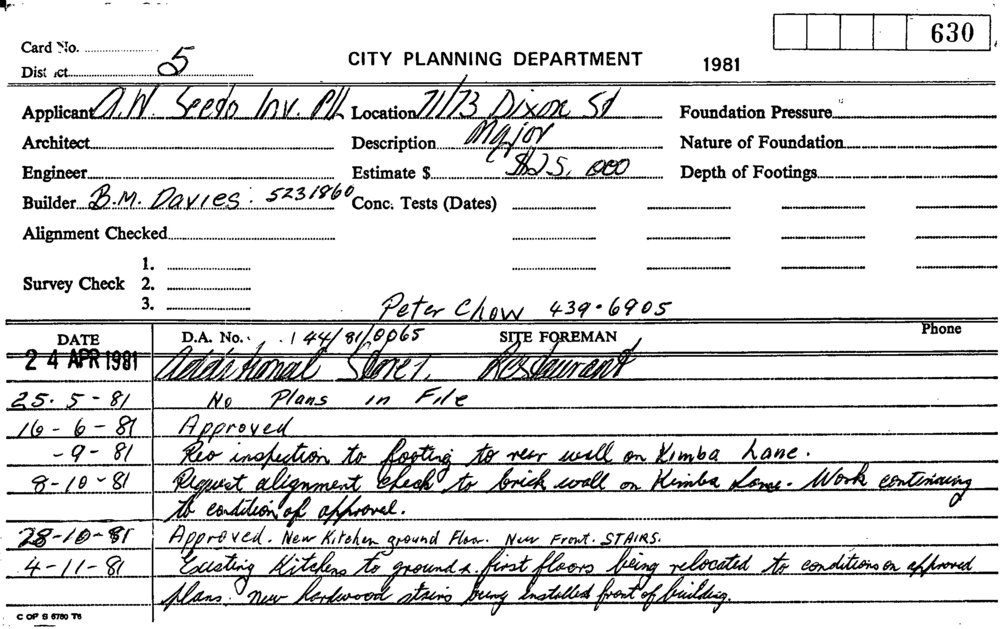 630
Card No.
District 5
CITY PLANNING DEPARTMENT 1981
Applicant A.W. Seeto Inv. P/L Location 71/73 Dixon St Foundation Pressure
Architect Description Major Nature of Foundation
Engineer Estimate $ $25,000 Depth of Footings
Builder B.M. Davies. 5231860 Conc. Tests (Dates)
Alignment Checked
1.
Survey Check 2.
3.
Peter Chow 439·6905
DATE D.A. No. 144/81/0065 SITE FOREMAN Phone
24 APR 1981 Additional Restaurant
25·5-81 No Plans in File
16-6-81 Approved
-9-81 Reo inspection to footing to rear wall on Kimba Lane.
8-10-81 Request alignment check to brick wall on Kimba Lane. Work continuing
to condition of approval.
28-10-81 Approved. New Kitchen ground Floor. New Front. STAIRS.
4-11-81 Existing Kitchens to ground & first floors being relocated to conditions on approved
plans. New hardwood stairs being installed front of building.
C OF S 6780 T6